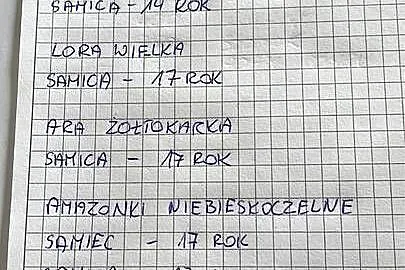 SAMICA - 14 ROK
LORA WIELKA
SAMICA - 17 ROK
ARA ŻÓŁTOKARKA
SAMICA - 17 ROK
AMAZONKI NIEBIESKOCZELNE
SAMIEC - 17 ROK